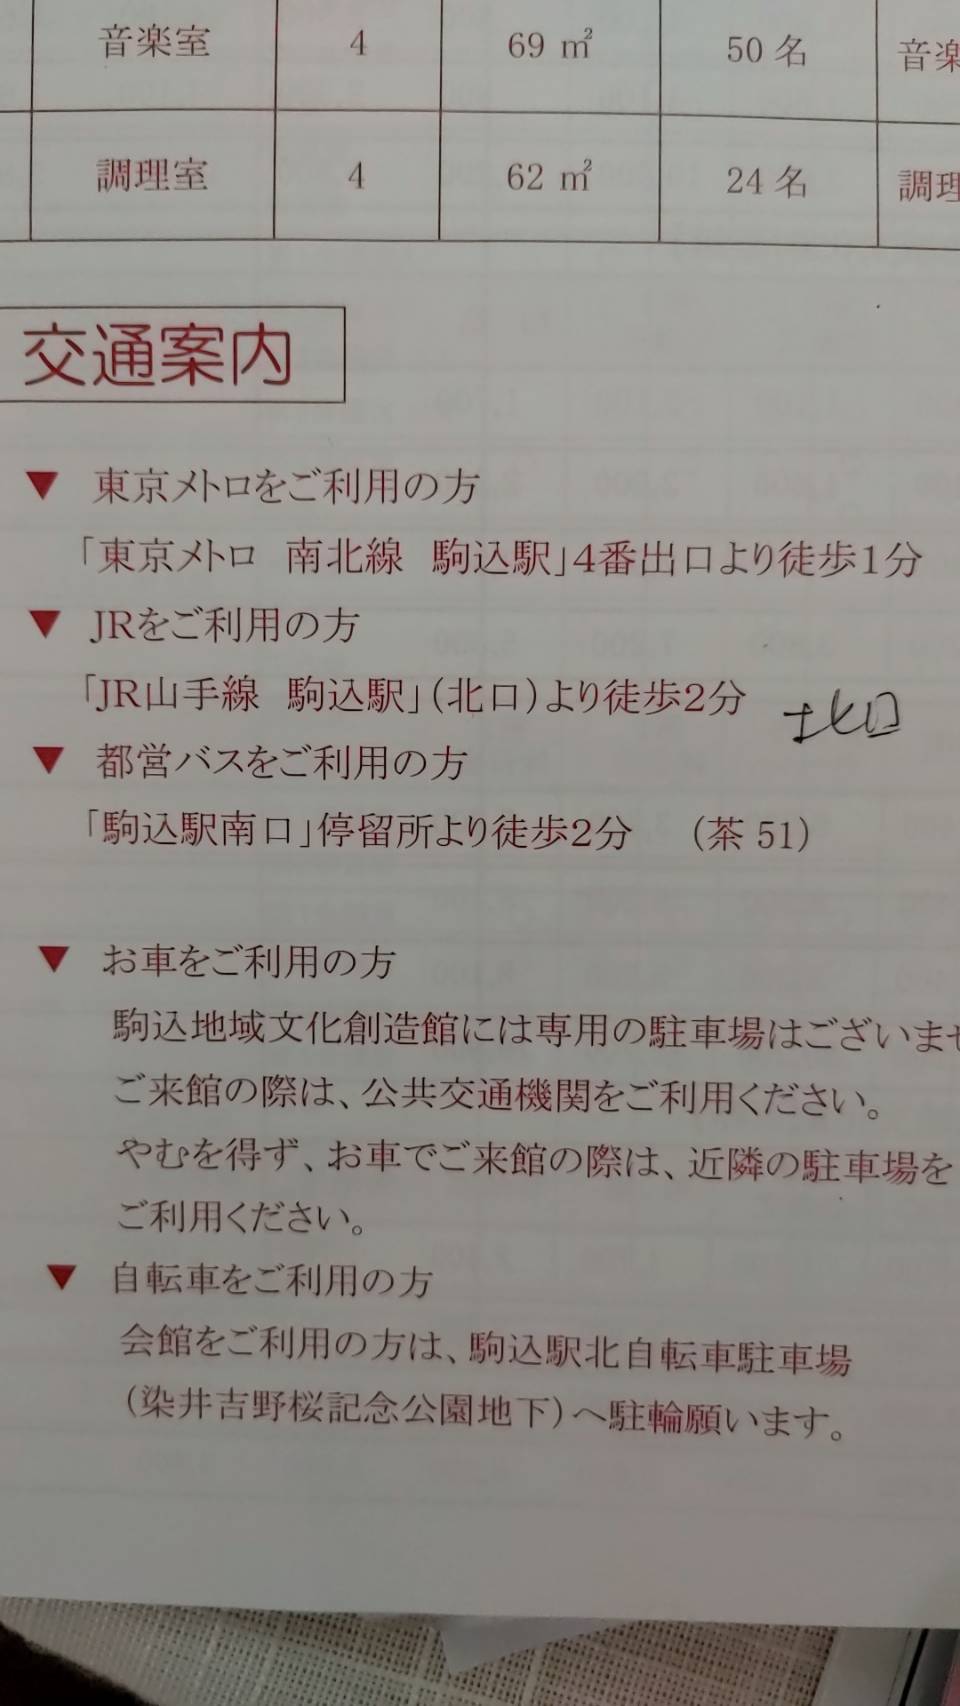 音楽室 4 69 ㎡ 50 名 音楽
調理室 4 62 ㎡ 24 名 調理
交通案内
▼ 東京メトロをご利用の方
「東京メトロ 南北線 駒込駅」4番出口より徒歩1分
▼ JRをご利用の方
「JR山手線 駒込駅」(北口)より徒歩2分 北口
▼ 都営バスをご利用の方
「駒込駅南口」停留所より徒歩2分 (茶 51)
▼ お車をご利用の方
駒込地域文化創造館には専用の駐車場はございませ
ご来館の際は、公共交通機関をご利用ください。
やむを得ず、お車でご来館の際は、近隣の駐車場を
ご利用ください。
▼ 自転車をご利用の方
会館をご利用の方は、駒込駅北自転車駐車場
(染井吉野桜記念公園地下)へ駐輪願います。